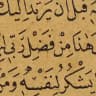 قَبْلَ أَنْ يَرْتَدَّ إِلَيْكَ
هَذَا مِنْ فَضْلِ رَبِّي
يَشْكُرُ لِنَفْسِهِ وَ